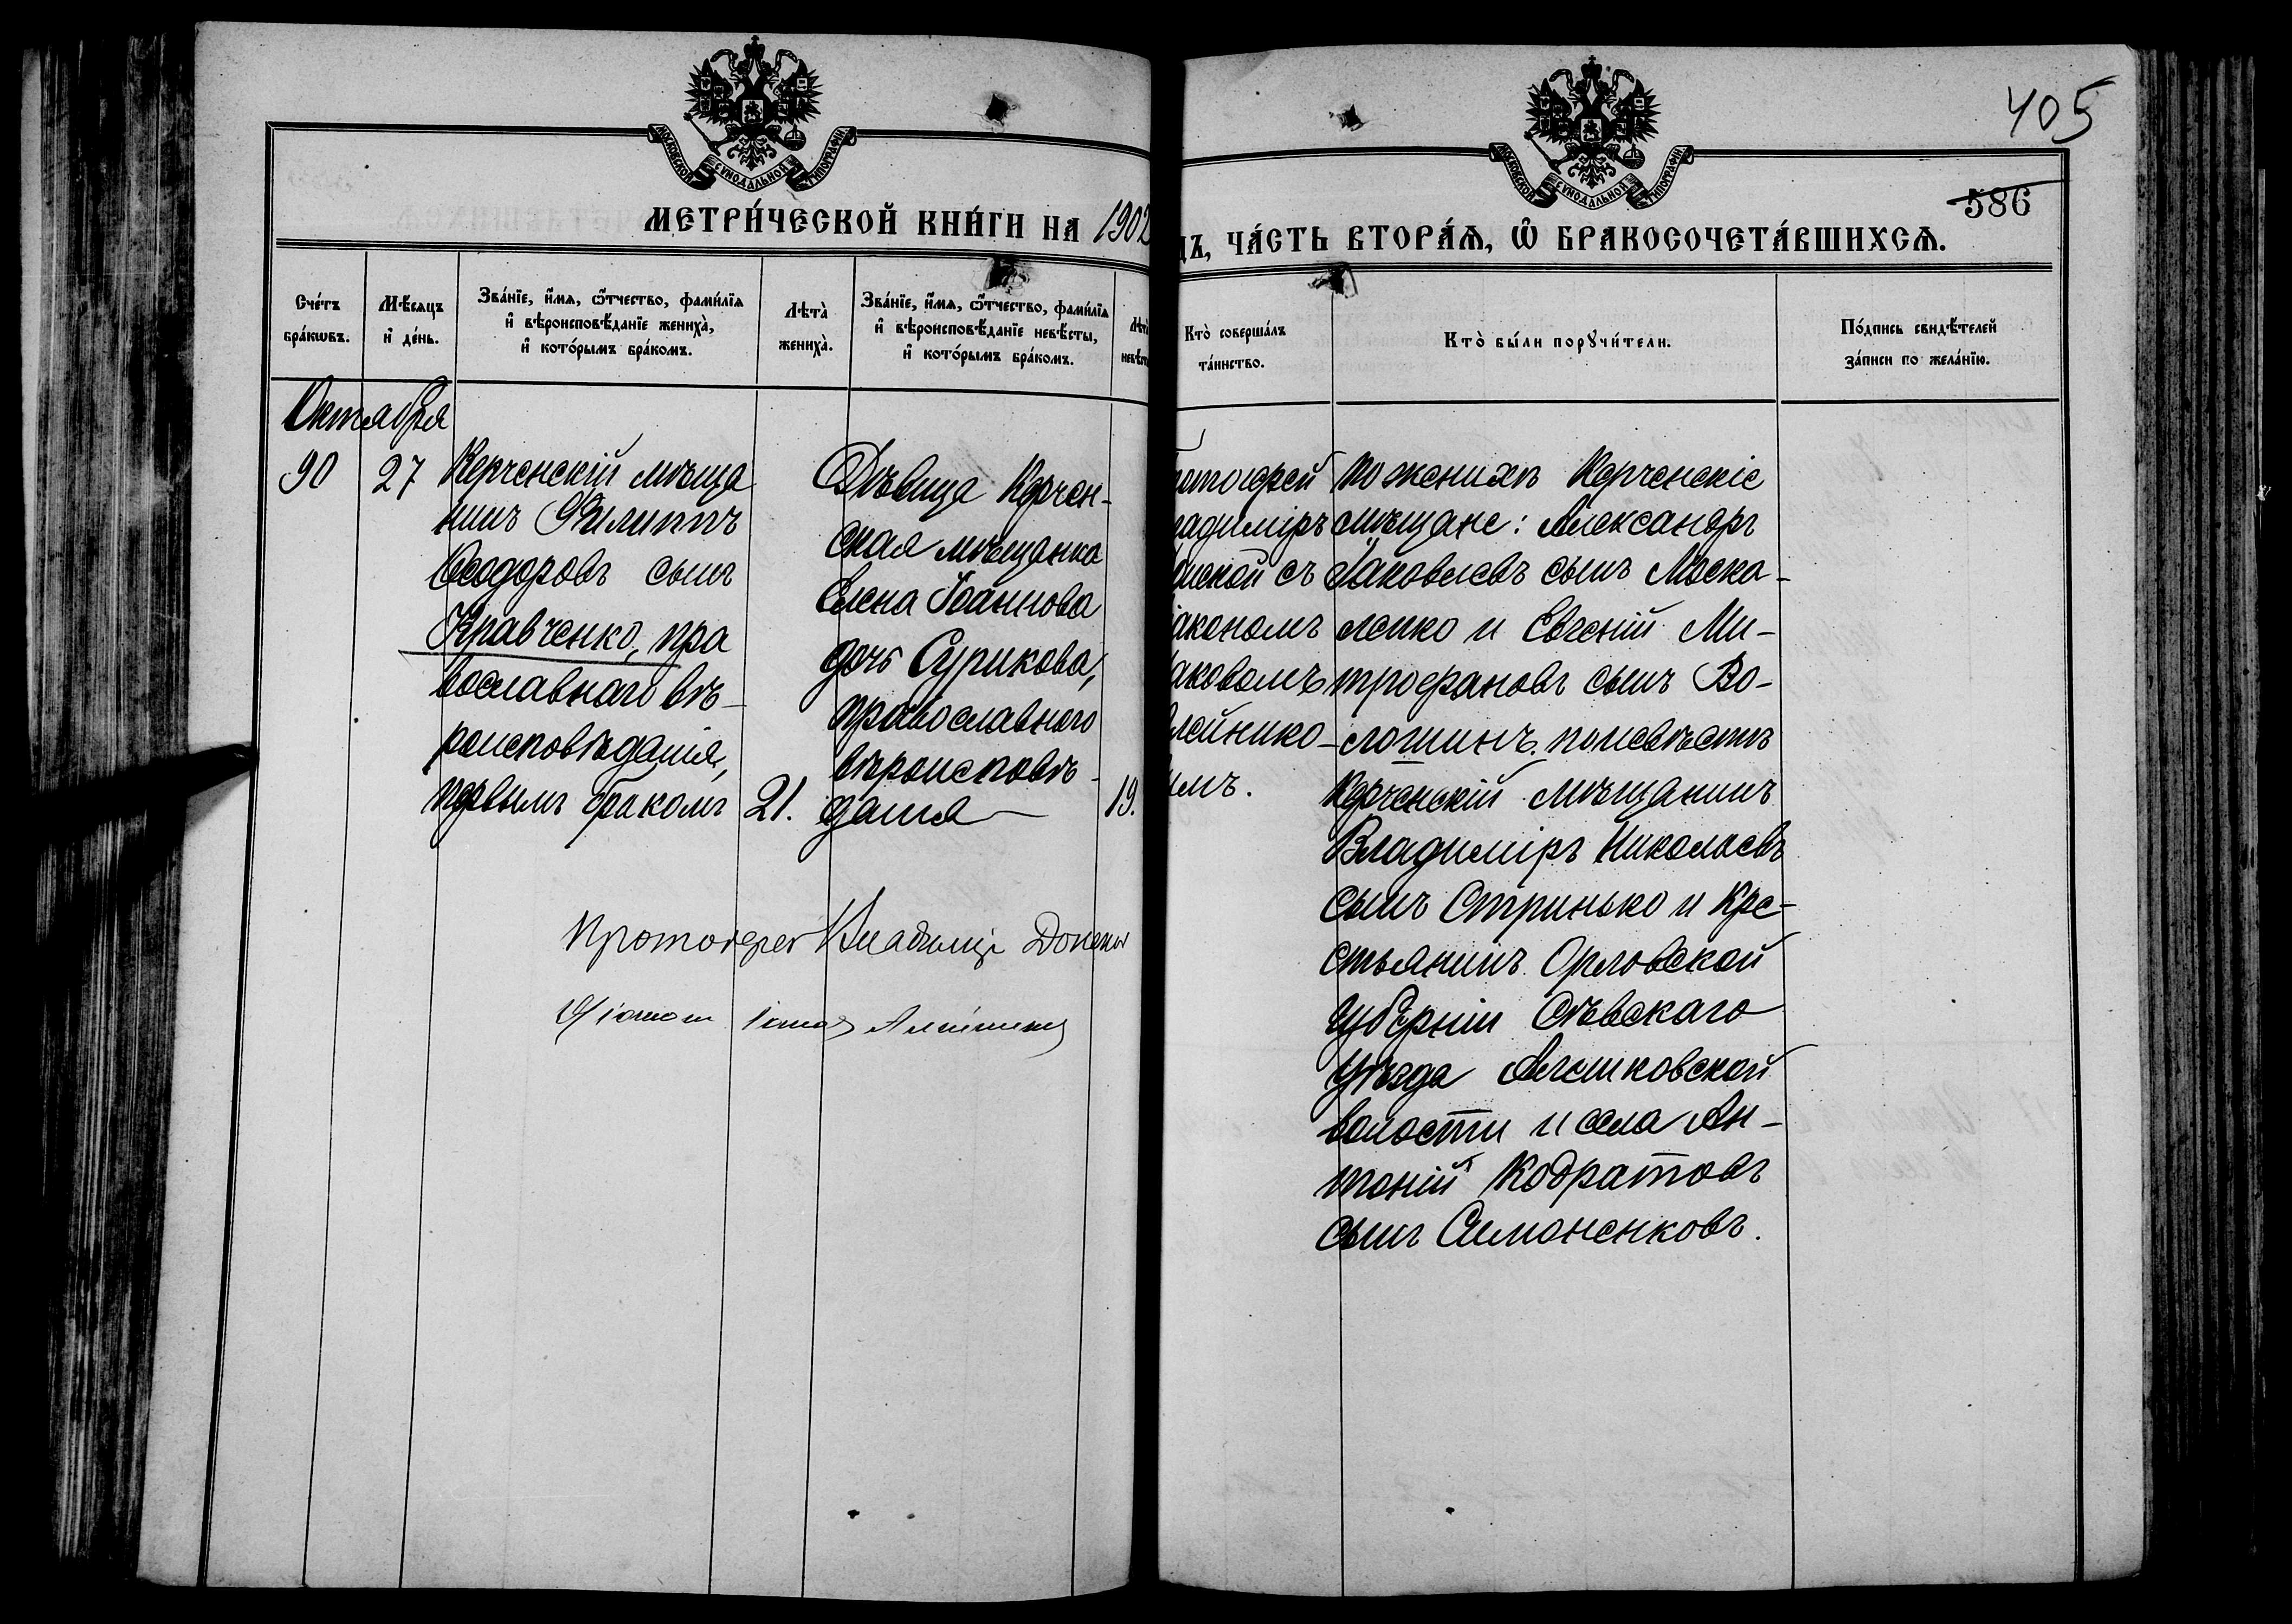 405
586
МОСКОВСКОЙ СУНОДАЛЬНОЙ ТИПОГРАФІИ
МОСКОВСКОЙ СУНОДАЛЬНОЙ ТИПОГРАФІИ
МЕТРИ́ЧЕСКОЙ КНИ́ГИ НА 1902
ДЪ, ЧА́СТЬ ВТОРА́Ѧ, Ѿ БРАКОСОЧЕТА́ВШИХСѦ.
Сче́тъ
бра́кѡвъ.
Мѣ́сяцъ
и҆ де́нь.
Зва́нїе, и҆́мѧ, ѻ҆́тчество, фами́лїѧ
и҆ вѣроисповѣ́данїе жениха̀,
и҆ кото́рымъ бра́комъ.
Лѣта̀
жениха̀.
Зва́нїе, и҆́мѧ, ѻ҆́тчество, фами́лїѧ
и҆ вѣроисповѣ́данїе невѣ́сты,
и҆ кото́рымъ бра́комъ.
Лѣта̀
невѣст
Кто̀ соверша́лъ
та́инство.
Кто̀ бы́ли пору́чи́тели.
По́дпись свидѣ́телей
за́писи по жела́нїю.
Октября
90
27
Керченскій мѣща
нинъ Филиппъ
Ѳеодоровъ сынъ
Кравченко, пра
вославнаго вѣ-
роисповѣданія,
первымъ бракомъ
21.
Дѣвица Керчен-
ская мѣщанка
Елена Іоаннова
дочь Сурикова,
православнаго
вѣроисповѣ-
данія
19.
ротоіерей
ладиміръ
нской съ
іакономъ
аковомъ
лейнико-
ымъ.
по женихѣ Керченскіе
мѣщане: Александръ
Іаковлевъ сынъ Моска-
ленко и Евгеній Ми-
трофановъ сынъ Во-
лошинъ. по невѣстѣ
Керченскій мѣщанинъ
Владиміръ Николаевъ
сынъ Стринько и кре-
стьянинъ Орловской
губерніи Сѣвскаго
уѣзда Алешковской
волости и села Ан-
тоній Кодратовъ
сынъ Симоненковъ.
Протоіерей Владимір Донск